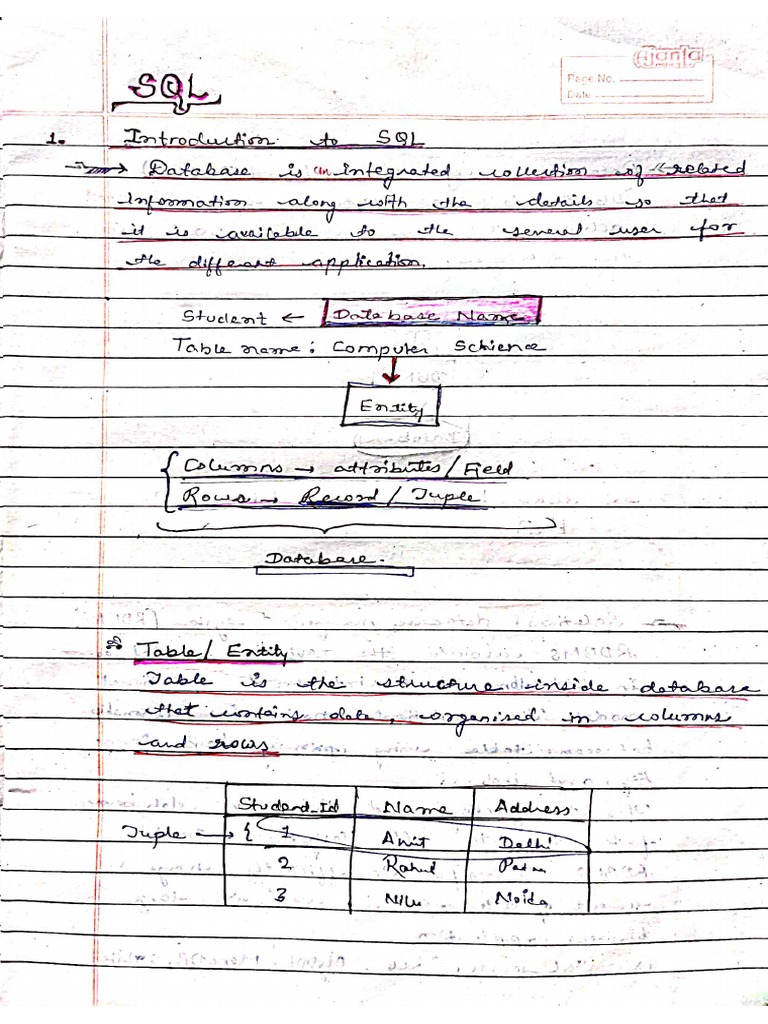 Ajanta
Page No.
Date
SQL
1. Introduction to SQL
→ Database is an integrated collection of related
information along with the details so that
it is available to the several user for
the different application.
Student ← Database Name
Table name: Computer Schience
Entity
Columns → attributes/Field
Rows → Record / Tuple
Database.
Table/ Entity
Table is the structure inside database
that contains data, organised in columns
and rows.
Student_Id Name Address
Tuple → { 1 Amit Delhi
2 Rahul
3 Noida